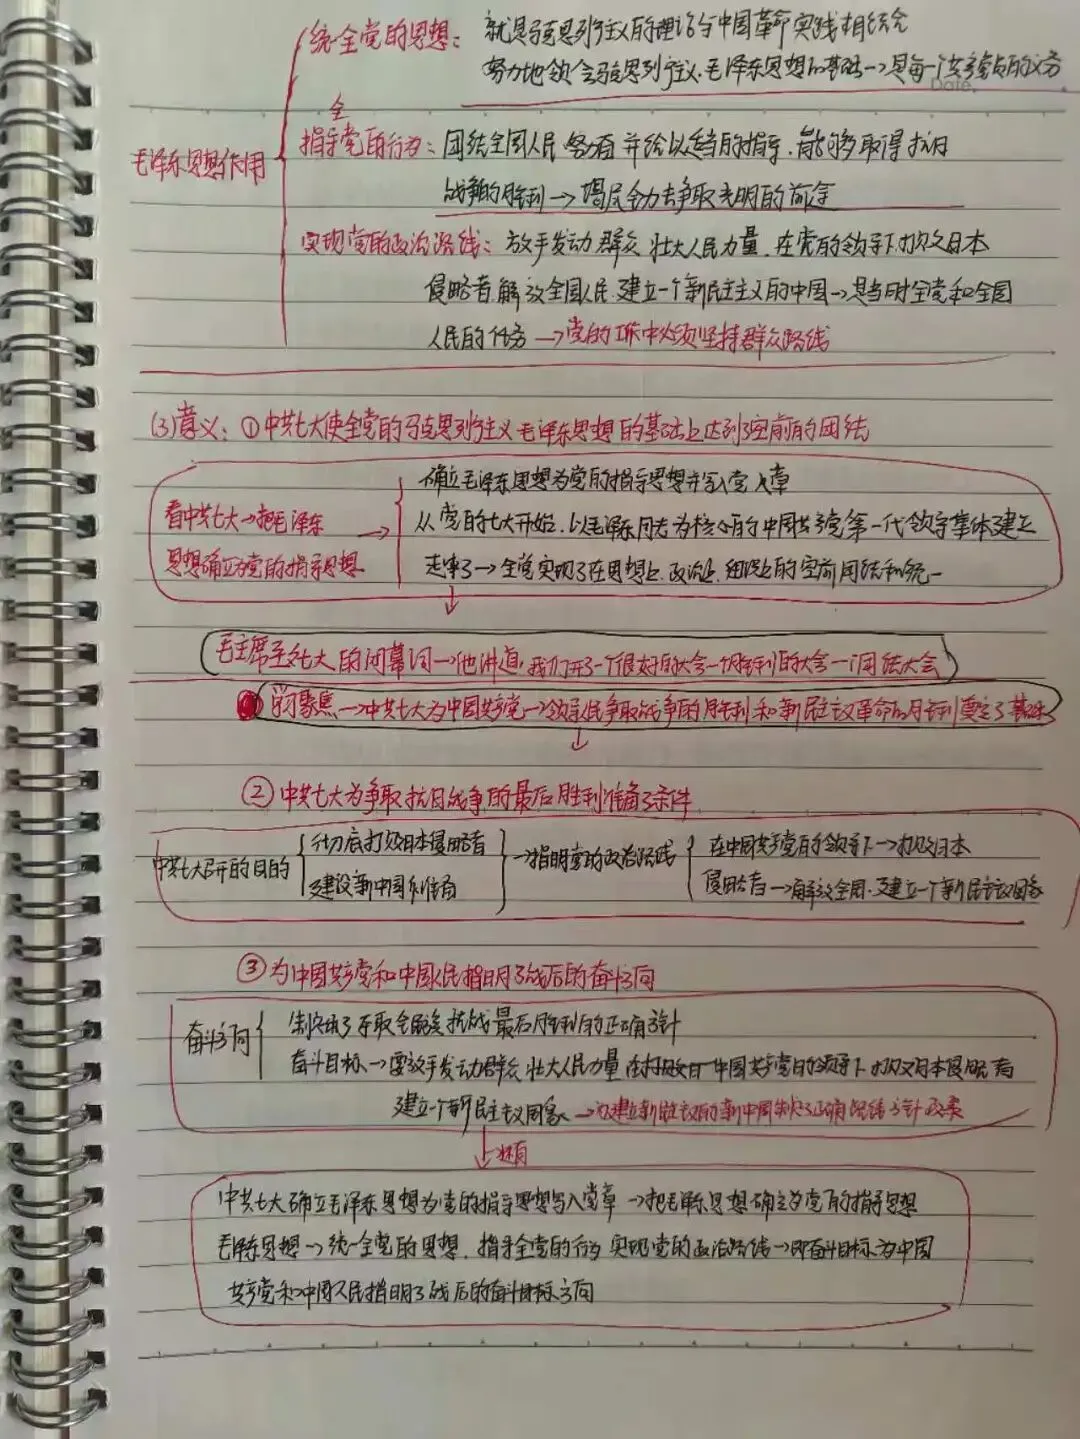 统全党的思想：就是马克思列宁主义的理论与中国革命实践相结合
努力地领会马克思列宁主义、毛泽东思想的基础→是每一个共产党员的义务
Date.
全
毛泽东思想作用
指导党的行为：团结全国人民 努力 并给以适当的指导，能够取得抗日
战争的胜利→竭尽全力去争取光明的前途
实现党的政治路线：放手发动群众 壮大人民力量，在党的领导下打败日本
侵略者，解放全国人民，建立一个新民主主义的中国→是当时全党和全国
人民的任务→党的工作中必须坚持群众路线
(3)意义：①中共七大使全党的马克思列宁主义 毛泽东思想的基础上达到了空前的团结
确立毛泽东思想为党的指导思想并写入党章
看中共七大→把毛泽东
从党的七大开始，以毛泽东同志为核心的中国共产党第一代领导集体建立
思想确立为党的指导思想
起来了→全党实现了在思想上、政治上、组织上的空前团结和统一
毛主席至 七大的闭幕词→他讲道，我们开了一个很好的大会一个胜利的大会一个团结大会
学习聚焦→中共七大为中国共产党→领导人民争取战争的胜利和新民主主义革命的胜利奠定了基础
②中共七大为争取抗日战争的最后胜利准备了条件
彻底打败日本侵略者
中共七大召开的目的
建设新中国作准备
→指明党的政治路线
在中国共产党的领导下→打败日本
侵略者→解放全国，建立一个新民主主义国家
③为中国共产党和中国人民指明了战后的奋斗方向
奋斗方向
制定了夺取全民族抗战最后胜利的正确方针
奋斗目标→要放手发动群众 壮大人民力量 在 中国共产党的领导下 打败日本侵略者
建立一个新民主主义国家→为建立新民主主义的新中国制定了正确路线方针政策
还有
中共七大确立毛泽东思想为党的指导思想写入党章→把毛泽东思想确立为党的指导思想
毛泽东思想→统一全党的思想，指导全党的行为 实现党的政治路线→即奋斗目标为中国
共产党和中国人民指明了战后的奋斗目标方向